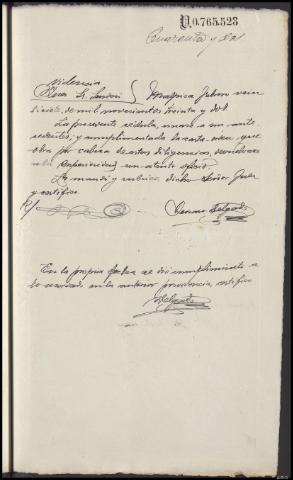 U.0.765.523
Cuarenta y dos
Providencia
Juez Sr. Malpica Julio vein
tisiete de mil novecientos treinta y dos
La precedente cédula, únase a sus ante
cedentes, y cumplimentada la carta orden, que
obra por cabeza de estas diligencias, devuélvase
a la Superioridad con atento oficio
Lo mandó y rubrica dicho Señor Juez
y certifico
Delgado
En la propia fecha se dió cumplimiento a
lo acordado en la anterior providencia, certifico
Delgado